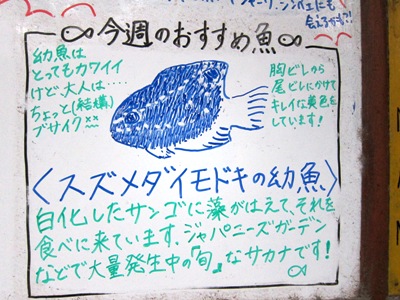 会えるかも?!
今週のおすすめ魚
幼魚は
とってもカワイイ
けど、大人は…
ちょっと(結構)
ブサイク××
胸ビレから
尾ビレにかけて
キレイな黄色を
しています!
〈スズメダイモドキの幼魚〉
白化したサンゴに藻がはえて、それを
食べに来ています。ジャパニーズガーデン
などで大量発生中の『旬』なサカナです!